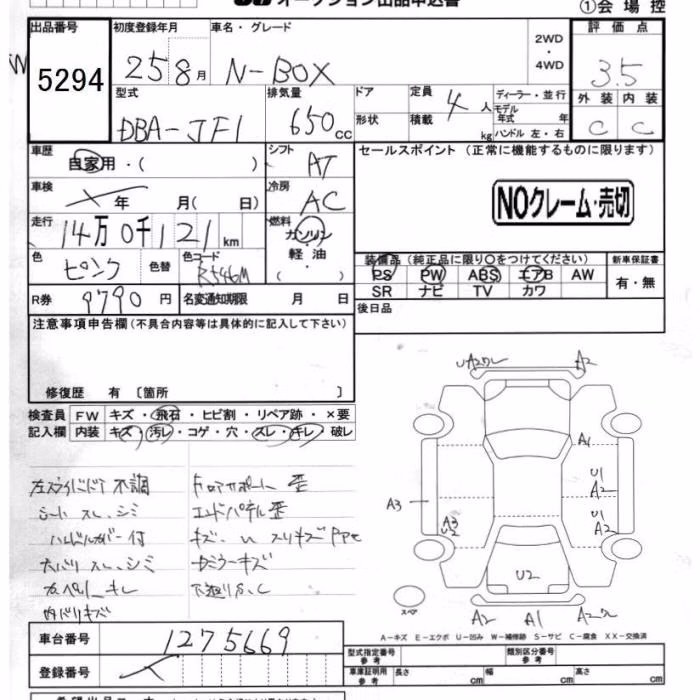 オークション出品申込書
①会場控
出品番号 初度登録年月 車名・グレード 2WD・4WD 評価点
5294 25 8月 N-BOX 3.5
型式 排気量 ドア 定員 4人 ディーラー・並行 外装 内装
DBA-JF1 650cc 形状 積載 kg モデル年式 年 ハンドル 左・右 C C
車歴 自家用・( ) シフト AT セールスポイント (正常に機能するものに限ります)
車検 年 月( 日) 冷房 AC
NOクレーム・売切
走行 14万0千121km 燃料 ガソリン 軽油・( )
色 ピンク 色替 色コード R546M
装備品(純正品に限り○をつけてください) 新車保証書
PS PW ABS エアB AW 有・無
SR ナビ TV カワ
R券 9790円 名変通知期限 月 日
後日品
注意事項申告欄(不具合内容等は具体的に記入して下さい)
修復歴 有 〔箇所 〕
検査員記入欄 FW キズ・飛石・ヒビ割・リペア跡・×要
内装 キズ・汚レ・コゲ・穴・スレ・キレ・破レ
左スライドドア不調
シート スレ、シミ
ハンドルカバー付
天バリ スレ、シミ
内バリキズ
コアサポート歪
エンドパネル歪
ミラーキズ
下廻りS、C
A2
A1
A3
U1
A2
U1
A2
A3
U2
U2
スペア
A2 A1
A-キズ E-エクボ U-凹み W-補修跡 S-サビ C-腐食 XX-交換済
車台番号 1275669
登録番号
型式指定番号 参考 類別区分番号 参考
車庫証明用 参考 長さ cm 幅 cm 高さ cm